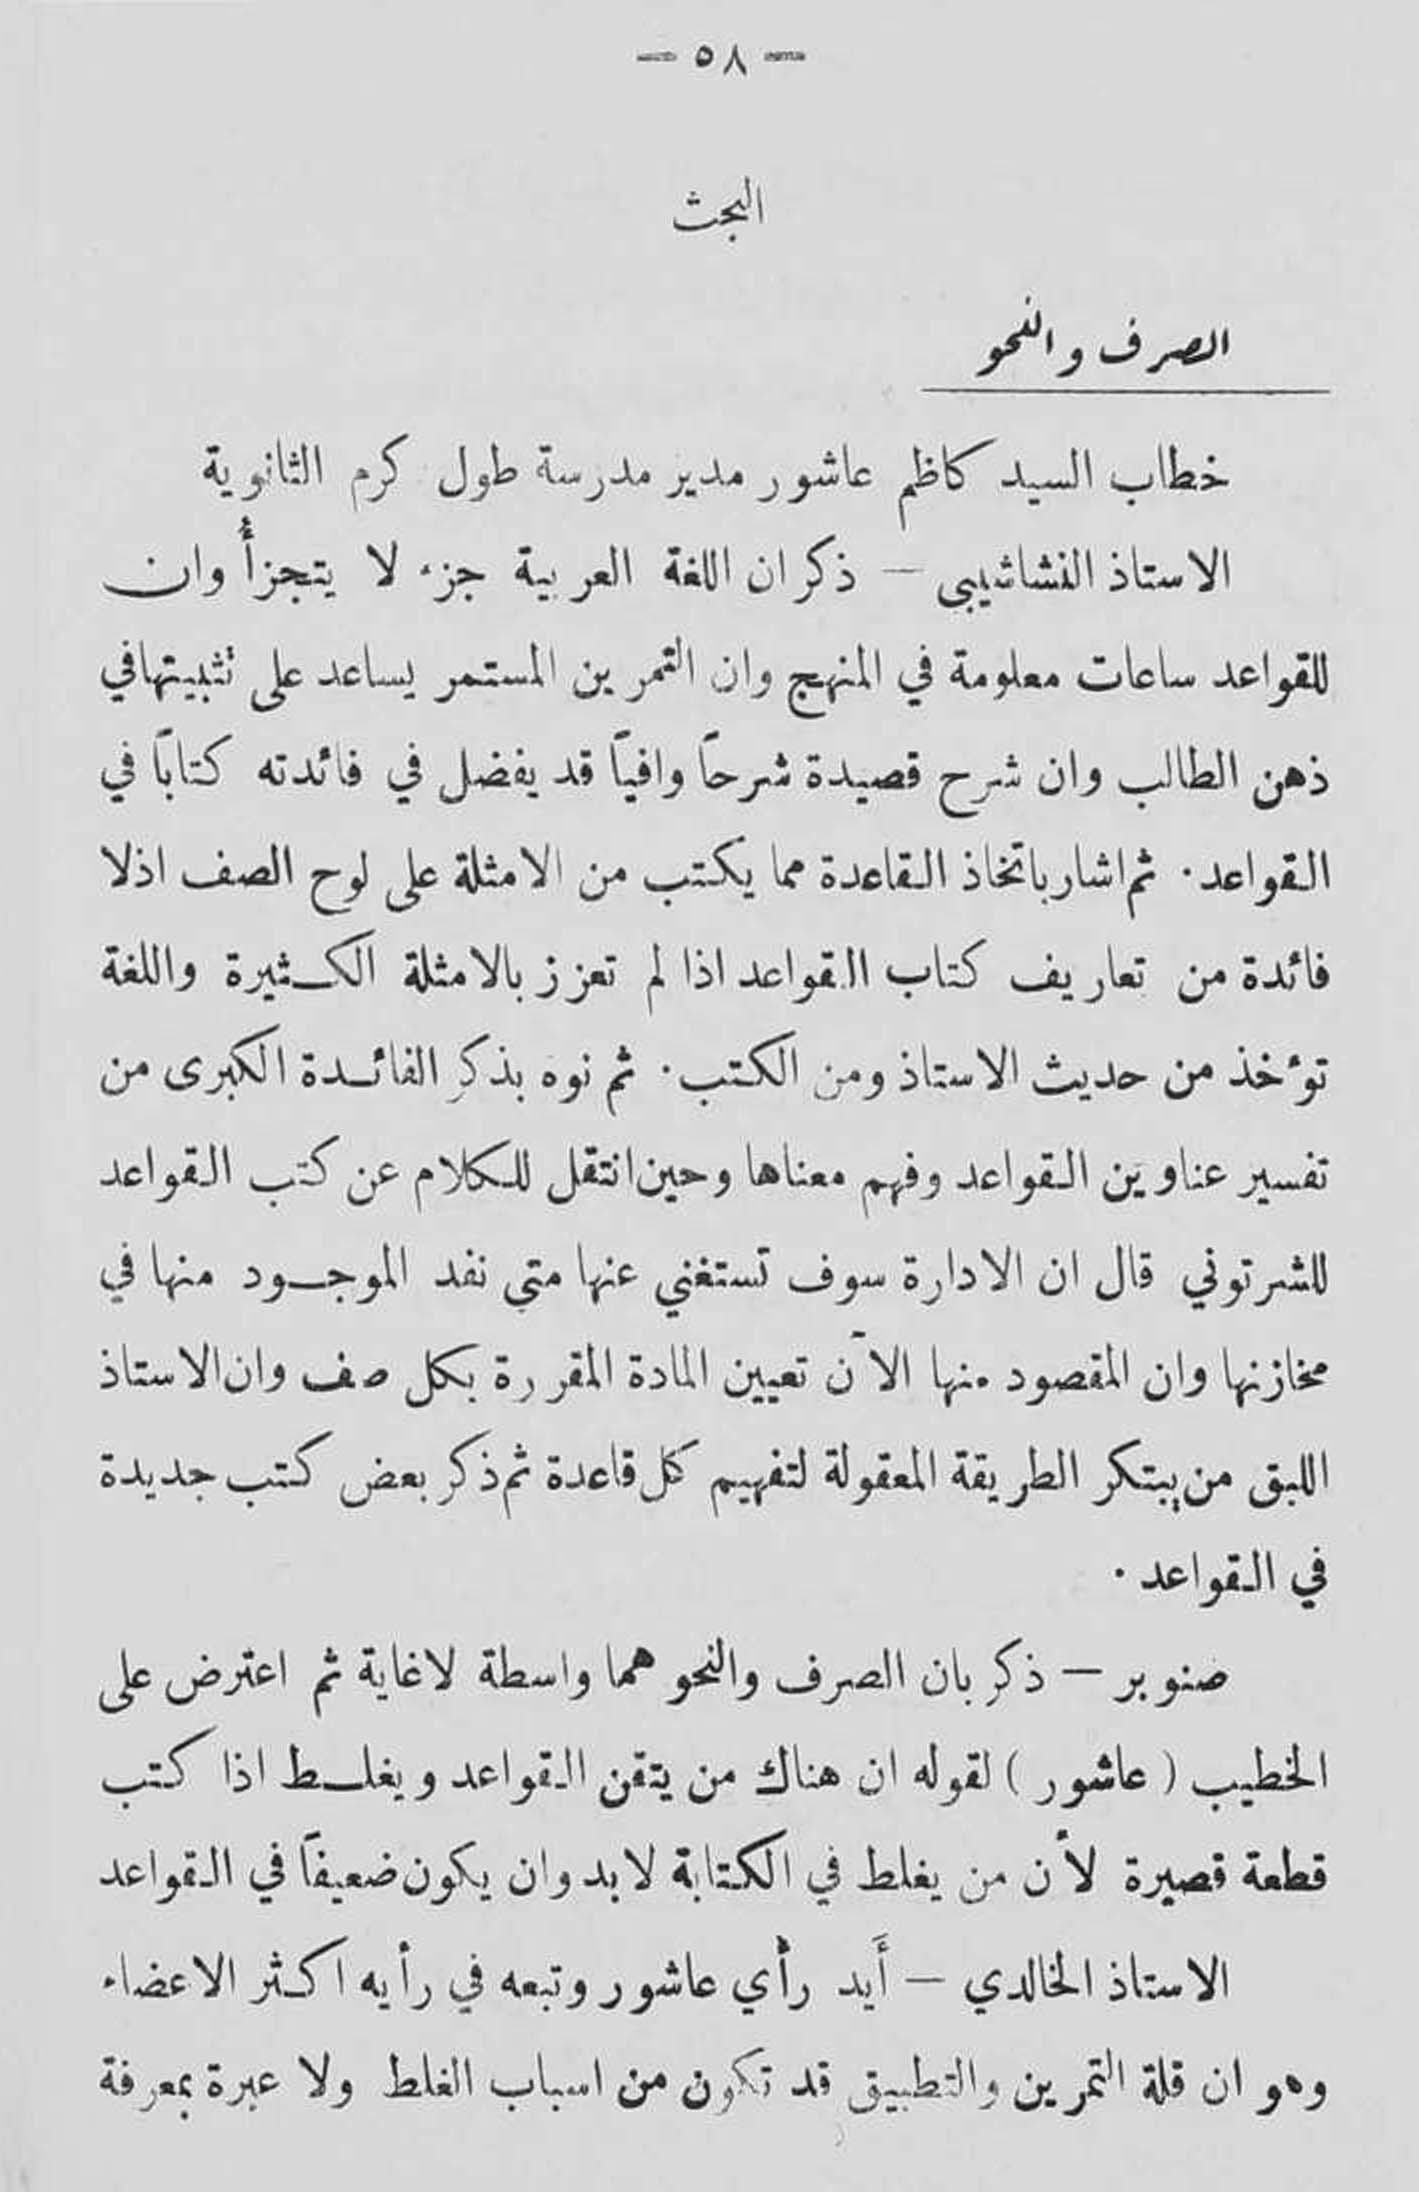 — ٥٨ —
البحث
الصرف والنحو
خطاب السيد كاظم عاشور مدير مدرسة طول كرم الثانوية
الاستاذ النشاشيبي — ذكر ان اللغة العربية جزء لا يتجزأ وان
للقواعد ساعات معلومة في المنهج وان التمرين المستمر يساعد على تثبيتها في
ذهن الطالب وان شرح قصيدة شرحاً وافياً قد يفضل في فائدته كتاباً في
القواعد . ثم اشار باتخاذ القاعدة مما يكتب من الامثلة على لوح الصف اذ لا
فائدة من تعاريف كتاب القواعد اذا لم تعزز بالامثلة الكثيرة واللغة
تؤخذ من حديث الاستاذ ومن الكتب . ثم نوه بذكر الفائدة الكبرى من
تفسير عناوين القواعد وفهم معناها وحين انتقل للكلام عن كتب القواعد
للشرتوني قال ان الادارة سوف تستغني عنها متى نفد الموجود منها في
مخازنها وان المقصود منها الآن تعيين المادة المقررة بكل صف وان الاستاذ
اللبق من يبتكر الطريقة المعقولة لتفهيم كل قاعدة ثم ذكر بعض كتب جديدة
في القواعد .
صنوبر — ذكر بان الصرف والنحو هما واسطة لا غاية ثم اعترض على
الخطيب ( عاشور ) لقوله ان هناك من يتقن القواعد ويغلط اذا كتب
قطعة قصيرة لأن من يغلط في الكتابة لا بد وان يكون ضعيفاً في القواعد
الاستاذ الخالدي — أَيد رأي عاشور وتبعه في رأيه اكثر الاعضاء
وهو ان قلة التمرين والتطبيق قد تكون من اسباب الغلط ولا عبرة بمعرفة